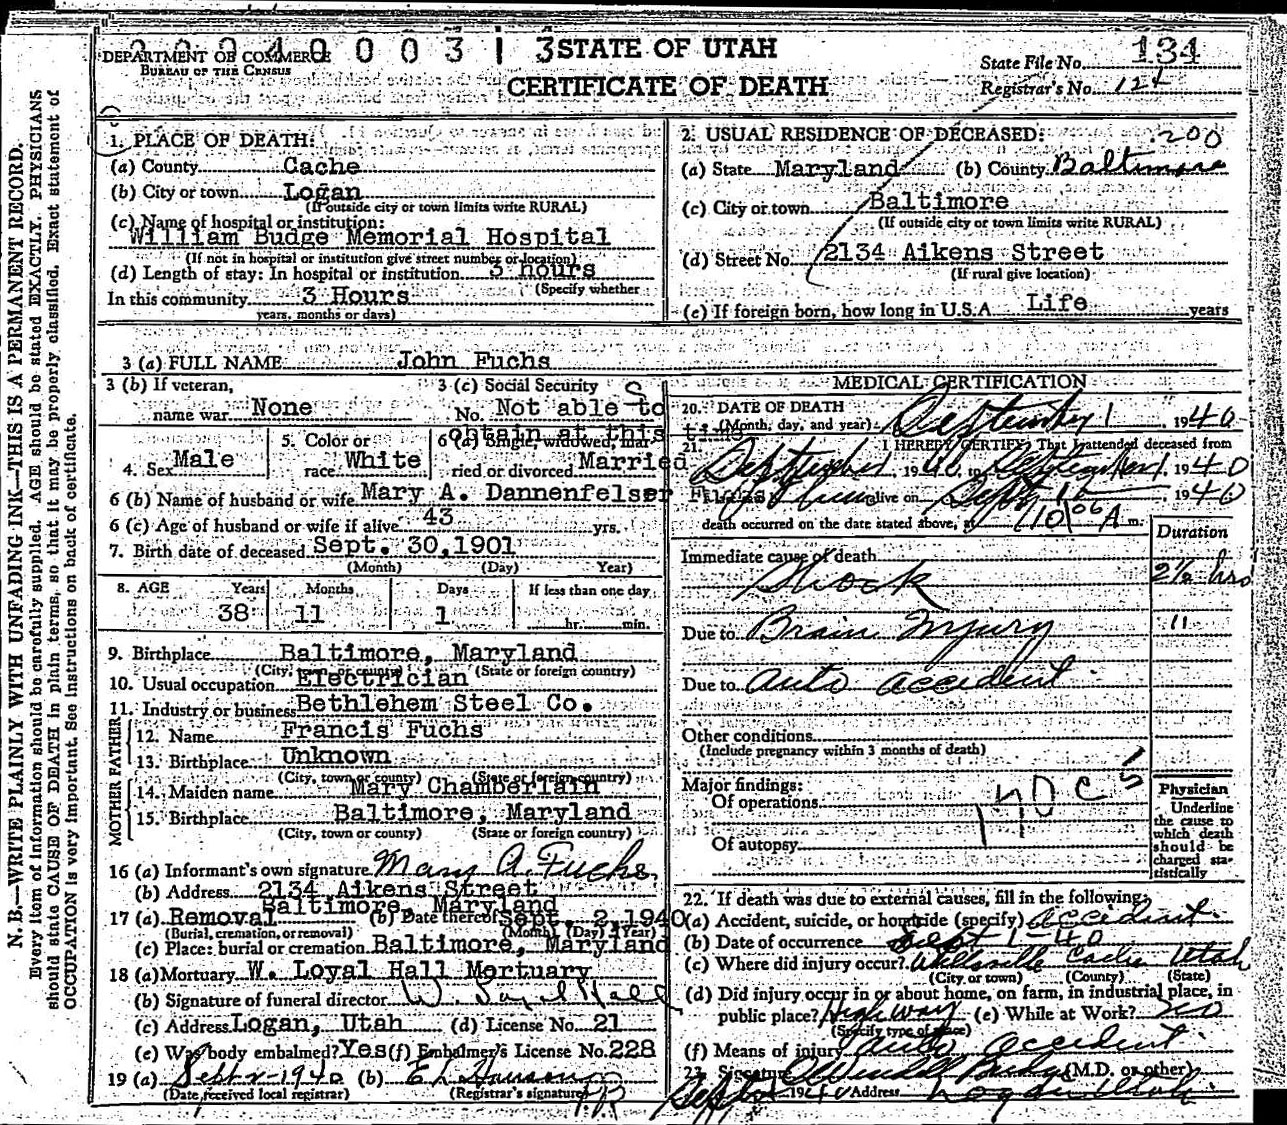 2 0 0 4 0 0 0 3 1 3
DEPARTMENT OF COMMERCE
BUREAU OF THE CENSUS
STATE OF UTAH
CERTIFICATE OF DEATH
State File No. 134
Registrar's No. 124
N. B.—WRITE PLAINLY WITH UNFADING INK—THIS IS A PERMANENT RECORD.
Every item of information should be carefully supplied. AGE should be stated EXACTLY. PHYSICIANS
should state CAUSE OF DEATH in plain terms, so that it may be properly classified. Exact statement of
OCCUPATION is very important. See instructions on back of certificate.
1. PLACE OF DEATH:
(a) County Cache
(b) City or town Logan
(If outside city or town limits write RURAL)
(c) Name of hospital or institution:
William Budge Memorial Hospital
(If not in hospital or institution give street number or location)
(d) Length of stay: In hospital or institution 3 hours
(Specify whether
In this community 3 Hours
years, months or days)
2. USUAL RESIDENCE OF DECEASED:
200
(a) State Maryland (b) County Baltimore
(c) City or town Baltimore
(If outside city or town limits write RURAL)
(d) Street No. 2134 Aikens Street
(If rural give location)
(e) If foreign born, how long in U.S.A. Life years
3 (a) FULL NAME John Fuchs
3 (b) If veteran,
name war None
3 (c) Social Security
No. Not able to
obtain at this time
4. Sex Male
5. Color or
race White
6 (a) Single, widowed, mar-
ried or divorced Married
6 (b) Name of husband or wife Mary A. Dannenfelser Fuchs
6 (c) Age of husband or wife if alive 43 yrs.
7. Birth date of deceased Sept. 30,1901
(Month) (Day) Year)
8. AGE Years Months Days If less than one day
38 11 1 hr. min.
9. Birthplace Baltimore, Maryland
(City, town or county) (State or foreign country)
10. Usual occupation Electrician
11. Industry or business Bethlehem Steel Co.
FATHER
12. Name Francis Fuchs
13. Birthplace Unknown
(City, town or county) (State or foreign country)
MOTHER
14. Maiden name Mary Chamberlain
15. Birthplace Baltimore, Maryland
(City, town or county) (State or foreign country)
16 (a) Informant's own signature Mary A. Fuchs
(b) Address 2134 Aikens Street
Baltimore, Maryland
17 (a) Removal (b) Date thereof Sept. 2, 1940
(Burial, cremation, or removal) (Month) (Day) (Year)
(c) Place: burial or cremation Baltimore, Maryland
18 (a) Mortuary W. Loyal Hall Mortuary
(b) Signature of funeral director W. Loyal Hall
(c) Address Logan, Utah (d) License No. 21
(e) Was body embalmed? Yes (f) Embalmer's License No. 228
19 (a) Sept 2-1940 (b)
(Date received local registrar) (Registrar's signature)
MEDICAL CERTIFICATION
20. DATE OF DEATH
(Month, day, and year) September 1 1940
21. I HEREBY CERTIFY, That I attended deceased from
September 1 1940 to September 1, 1940
alive on Sept 1 1940
death occurred on the date stated above, at 10 06 A m.
Duration
Immediate cause of death
Shock 2½ hrs
Due to Brain Injury "
Due to auto accident
Other conditions
(Include pregnancy within 3 months of death)
Major findings:
Of operations
170 c 5
Of autopsy
Physician
Underline
the cause to
which death
should be
charged sta-
tistically
22. If death was due to external causes, fill in the following:
(a) Accident, suicide, or homicide (specify) accident
(b) Date of occurrence Sept 1-40
(c) Where did injury occur? Wellsville Cache Utah
(City or town) (County) (State)
(d) Did injury occur in or about home, on farm, in industrial place, in
public place? Highway (e) While at Work? no
(Specify type of place)
(f) Means of injury auto accident
23. Signature (M.D. or other)
Sept 1940 Address Logan Utah